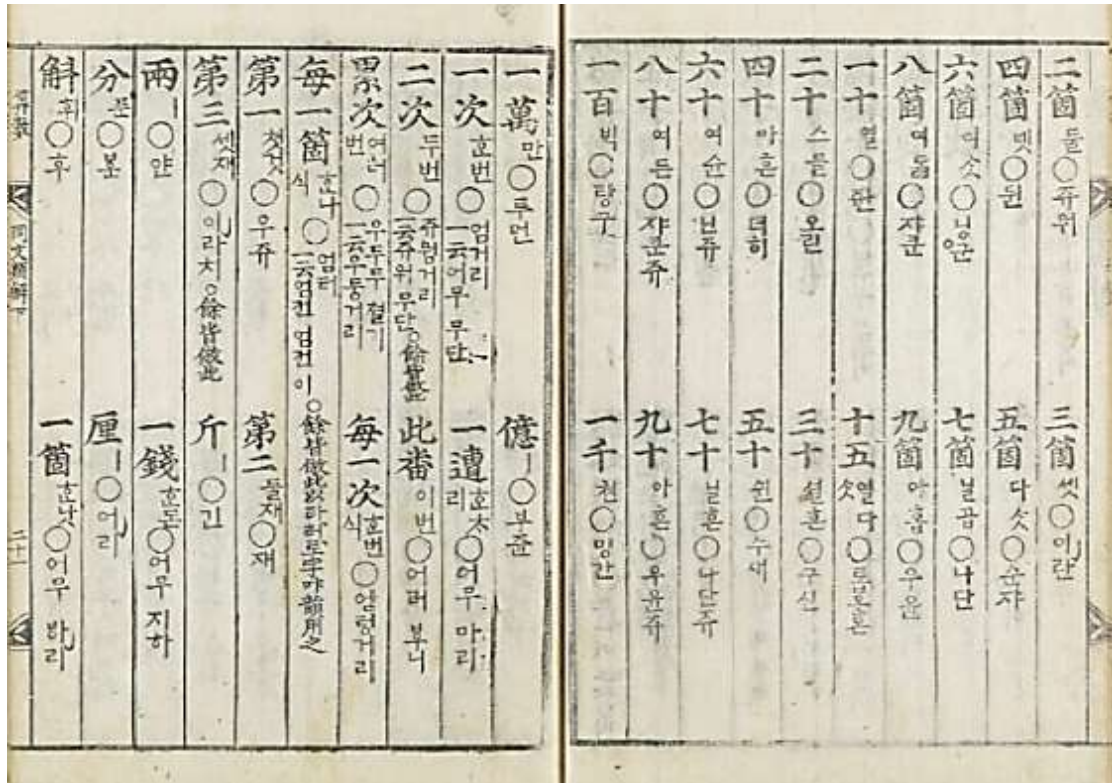 二箇 둘○쥬워 三箇 셋○이란
四箇 넷○뒨 五箇 다ᄉᆞᆺ○순쟈
六箇 여ᄉᆞᆺ○닝운 七箇 닐곱○나단
八箇 여ᄃᆞᆲ○쟈쿤 九箇 아홉○우윤
一十 열○좐 十五 열다ᄉᆞᆺ○토보혼
二十 스믈○오린 三十 셜흔○구신
四十 마흔○더히 五十 쉰○수새
六十 여슌○닌쥬 七十 닐흔○나단쥬
八十 여든○쟈쿤쥬 九十 아흔○우윤쥬
一百 ᄇᆡᆨ○탕구 一千 쳔○밍간
一萬 만○투먼 億 ㅣ○부쥰
一次 ᄒᆞᆫ번○엄거리 一云어무 무단 一遭 ᄒᆞᆫ 리○어무 마리
二次 두번○쥬웜거리 一云쥬워무단○餘皆倣此 此番 이번○어러 부니
累次 여러번○우두무 절기 一云우둥거리 每一次 ᄒᆞᆫ번식○엄텅거리
每一箇 ᄒᆞ나식○엄터 一云엄컨 엄컨 이○餘皆倣此
第一 첫것○우쥬 第二 둘재○재
第三 셋재○이라치○餘皆倣此 斤 ㅣ○긴
兩 ㅣ○얀 一錢 ᄒᆞᆫ돈○어무 지하
分 푼○분 厘 ㅣ○어리
斛 휘○후 一箇 ᄒᆞᆫ낫○어무 바리
同文類解下
二十一